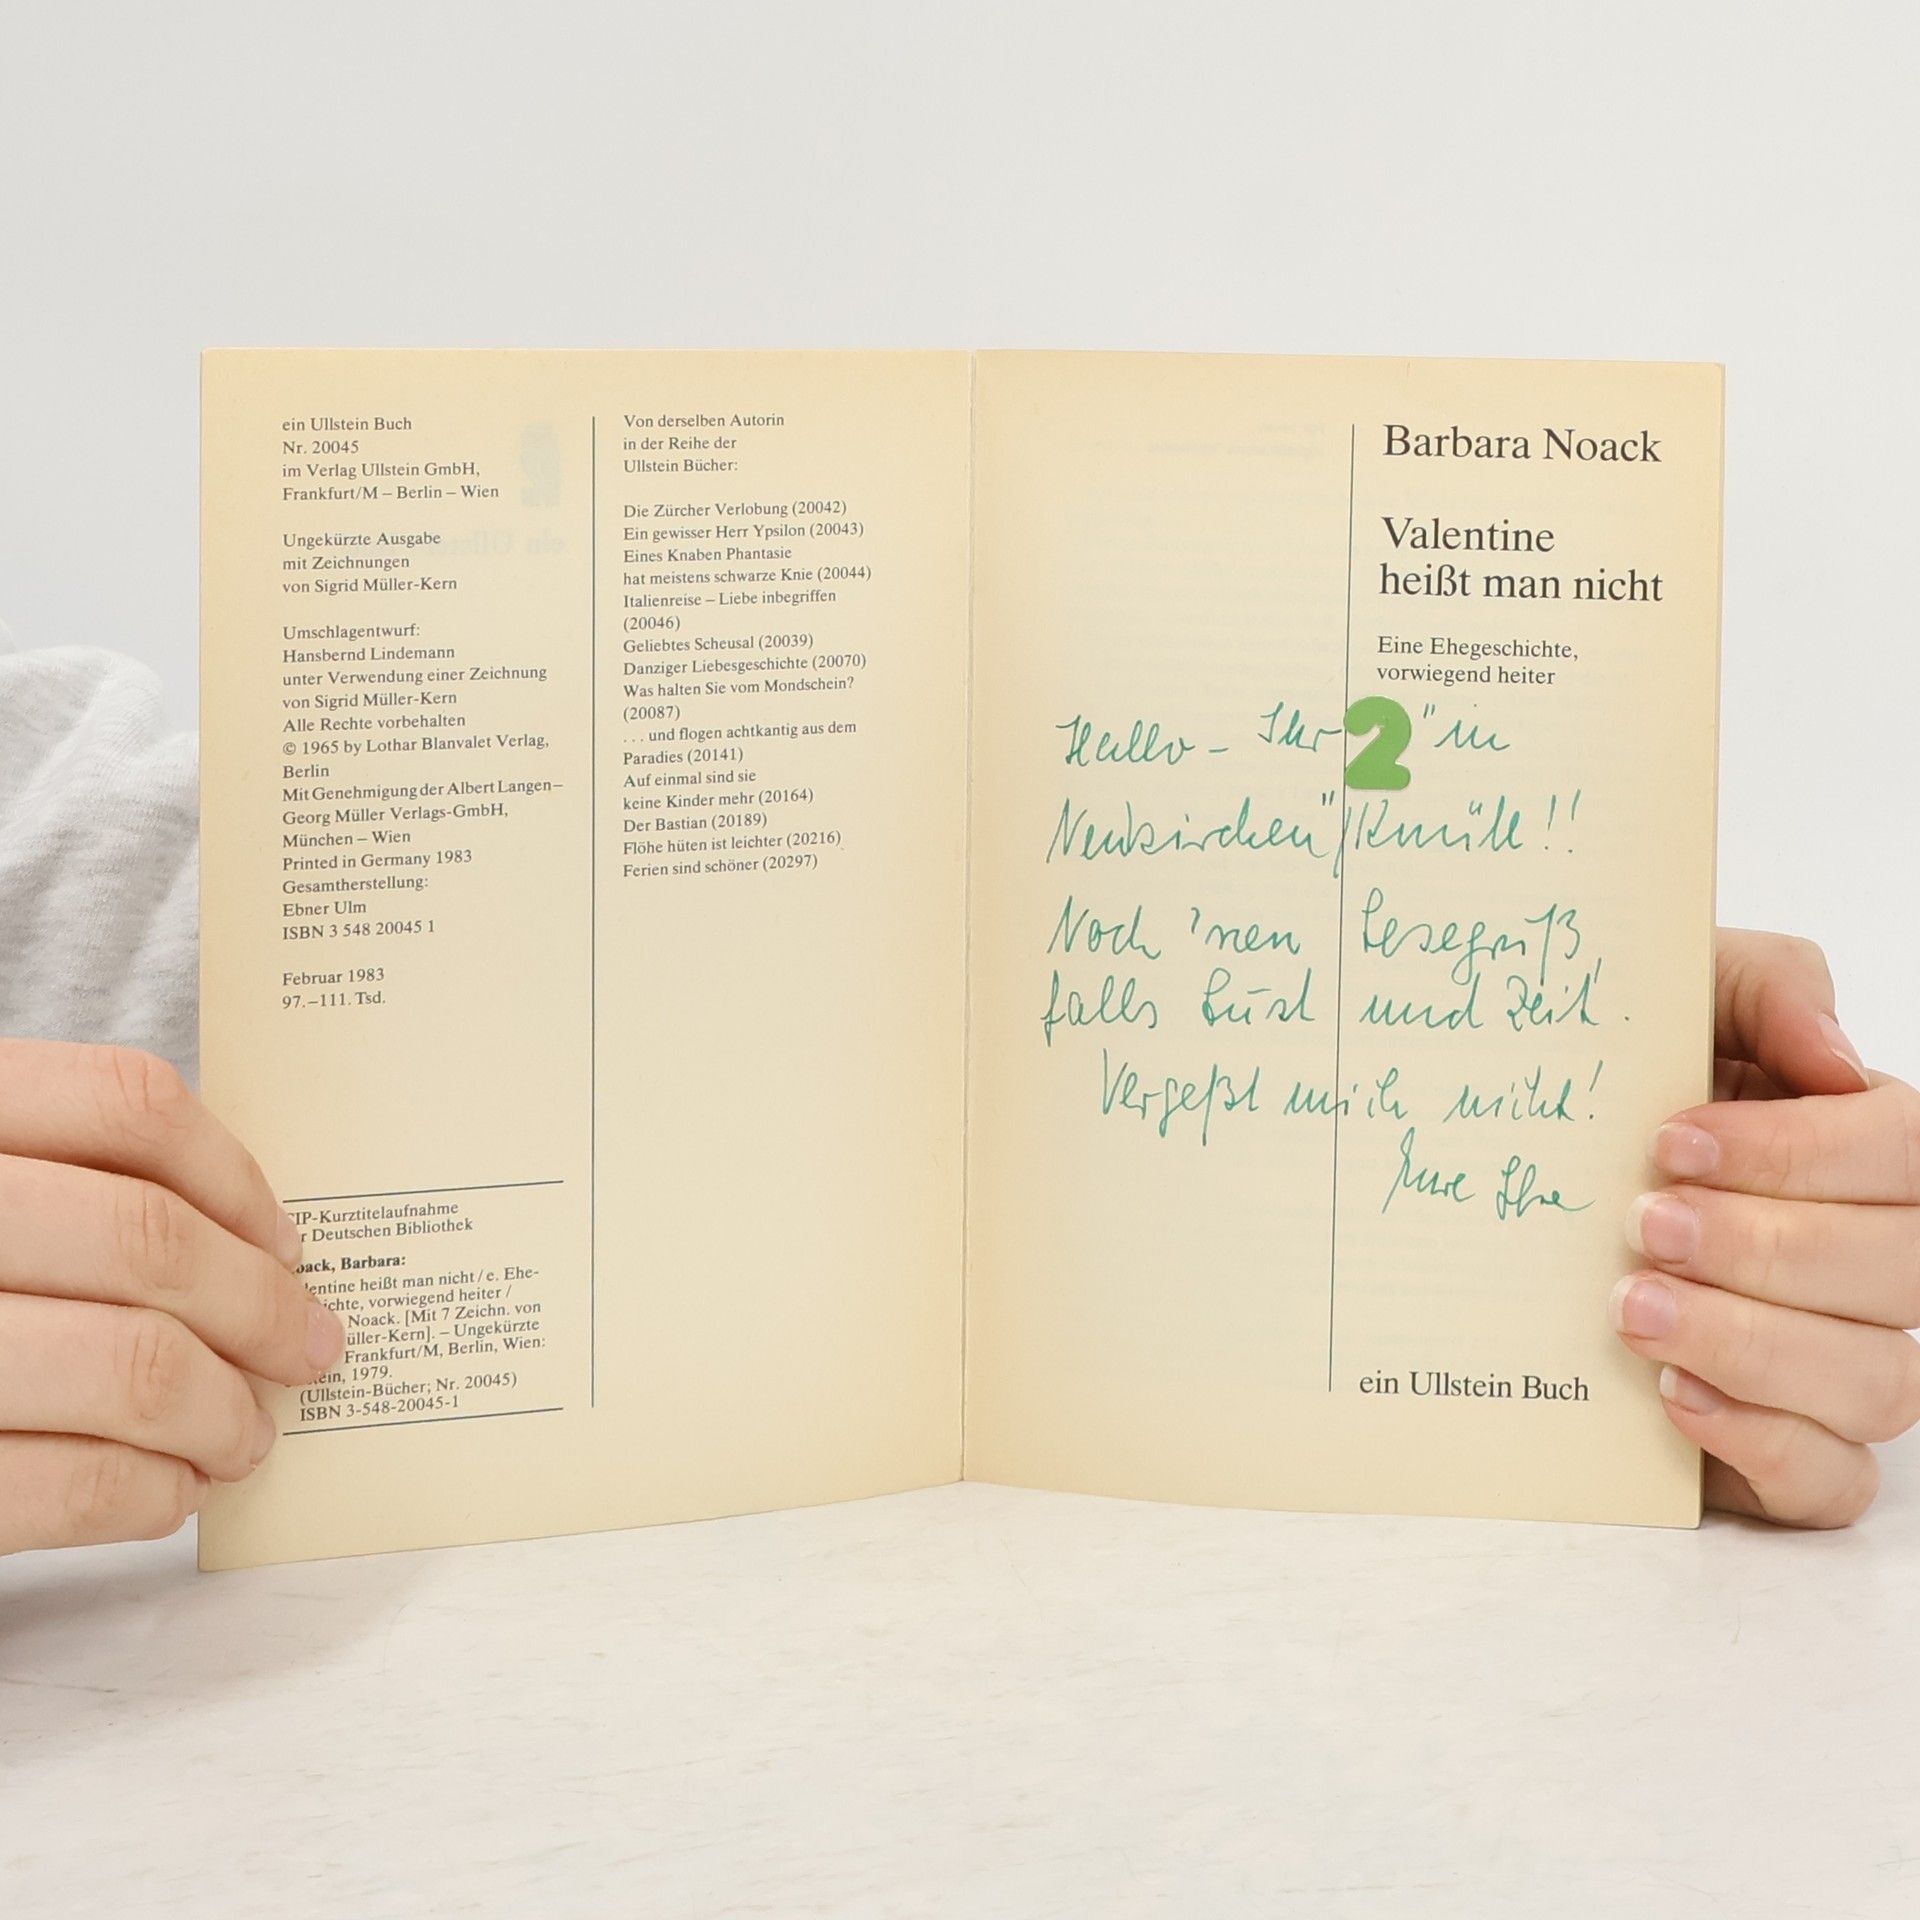 ein Ullstein Buch
Nr. 20045
im Verlag Ullstein GmbH,
Frankfurt/M – Berlin – Wien
Ungekürzte Ausgabe
mit Zeichnungen
von Sigrid Müller-Kern
Umschlagentwurf:
Hansbernd Lindemann
unter Verwendung einer Zeichnung
von Sigrid Müller-Kern
Alle Rechte vorbehalten
© 1965 by Lothar Blanvalet Verlag,
Berlin
Mit Genehmigung der Albert Langen–
Georg Müller Verlags-GmbH,
München – Wien
Printed in Germany 1983
Gesamtherstellung:
Ebner Ulm
ISBN 3 548 20045 1
Februar 1983
97.–111. Tsd.
IP-Kurztitelaufnahme
r Deutschen Bibliothek
oack, Barbara:
entine heißt man nicht / e. Ehe-
ichte, vorwiegend heiter /
Noack. [Mit 7 Zeichn. von
üller-Kern]. – Ungekürzte
Frankfurt/M, Berlin, Wien:
ein, 1979.
(Ullstein-Bücher; Nr. 20045)
ISBN 3-548-20045-1
Von derselben Autorin
in der Reihe der
Ullstein Bücher:
Die Zürcher Verlobung (20042)
Ein gewisser Herr Ypsilon (20043)
Eines Knaben Phantasie
hat meistens schwarze Knie (20044)
Italienreise – Liebe inbegriffen
(20046)
Geliebtes Scheusal (20039)
Danziger Liebesgeschichte (20070)
Was halten Sie vom Mondschein?
(20087)
. . . und flogen achtkantig aus dem
Paradies (20141)
Auf einmal sind sie
keine Kinder mehr (20164)
Der Bastian (20189)
Flöhe hüten ist leichter (20216)
Ferien sind schöner (20297)
Barbara Noack
Valentine
heißt man nicht
Eine Ehegeschichte,
vorwiegend heiter
Hallo – Ihr 2" in
Neukirchen"/Knüll!!
Noch 'nen Lesegruß,
falls Lust und Zeit.
Vergeßt mich nicht!
Eure
ein Ullstein Buch